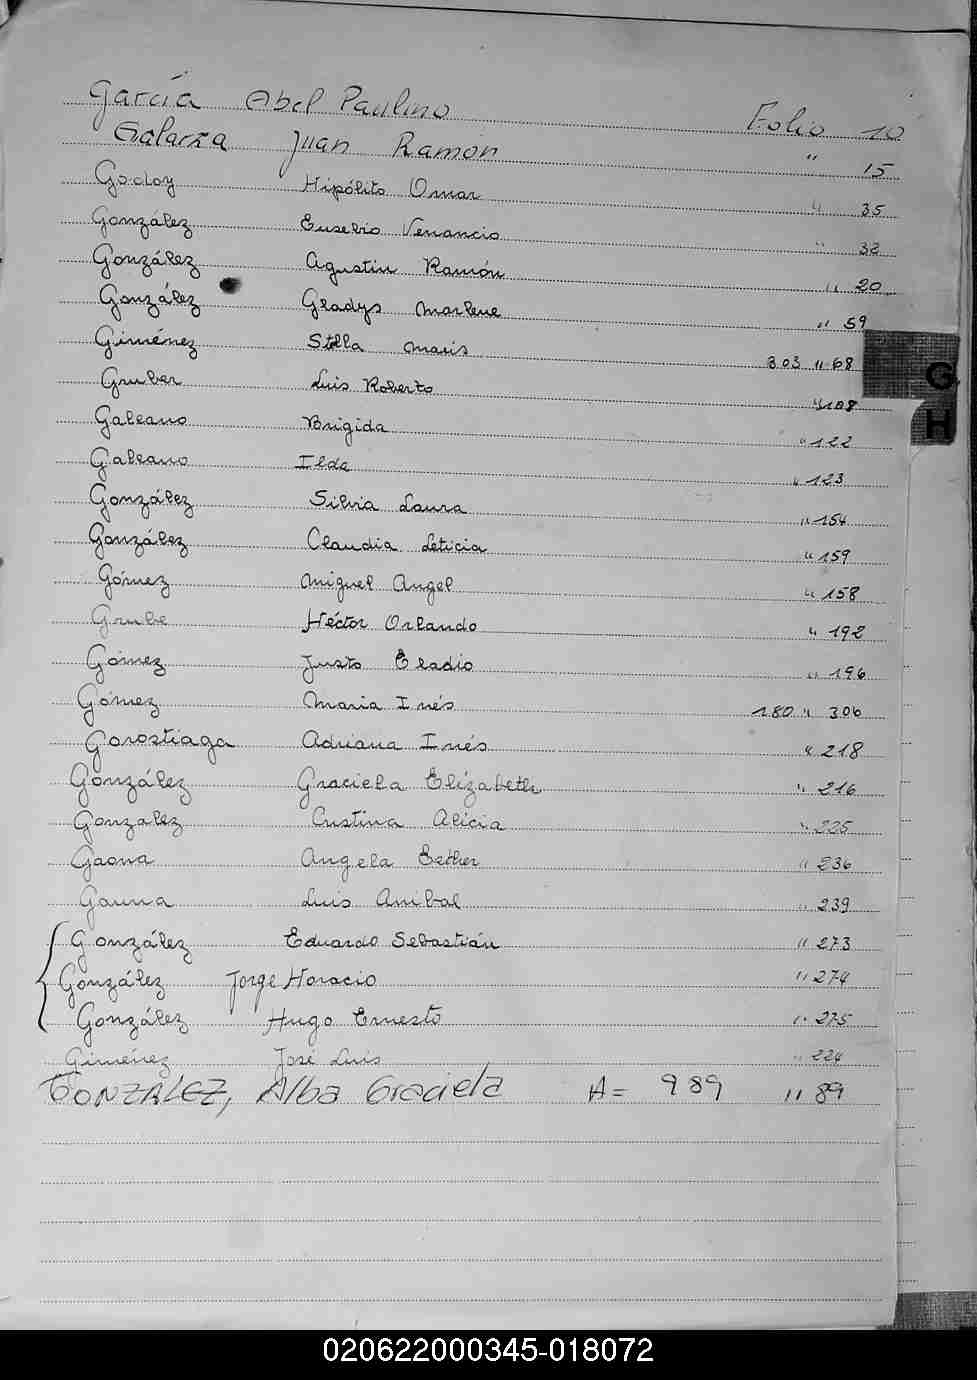 García Abel Paulino Folio 10
Galarza Juan Ramón " 15
Godoy Hipólito Omar " 35
González Eusebio Venancio " 32
González Agustín Ramón " 20
González Gladys Marlene " 59
Giménez Stella Maris 303 " 68
Gruber Luis Roberto " 108
Galeano Brígida " 122
Galeano Ilda " 123
González Silvia Laura " 154
González Claudia Leticia " 159
Gómez Miguel Angel " 158
Grube Héctor Orlando " 192
Gómez Justo Eladio " 196
Gómez Maria Inés 180 " 306
Gorostiaga Adriana Inés " 218
González Graciela Elizabeth " 216
Gonzalez Cristina Alicia " 225
Gaona Angela Esther " 236
Gauna Luis Anibal " 239
González Eduardo Sebastián " 273
González Jorge Horacio " 274
González Hugo Ernesto " 275
Giménez José Luis " 224
GONZALEZ, Alba Graciela A = 989 " 89
G
H
020622000345-018072